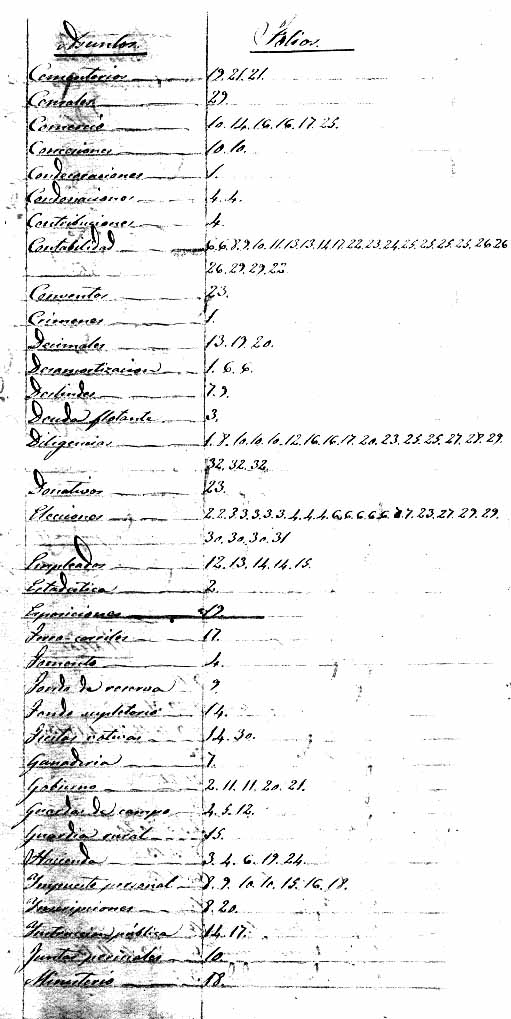 Asuntos. Folios.
Cementerios 19. 21. 21.
Censales 29.
Comercio 10. 14. 16. 16. 17. 25.
Comisiones 10. 10.
Condecoraciones 1.
Condonaciones 4. 4.
Contribuciones 4.
Contabilidad 6. 6. 8. 9. 10. 11. 13. 13. 14. 17. 22. 23. 24. 25. 25. 25. 25. 26. 26
26. 29. 29. 22.
Conventos 23.
Crimenes 1.
Decimales 13. 19. 20.
Desamortizacion 1. 6. 6.
Deslindes 7. 9.
Deuda flotante 3.
Diligencias 1. 8. 10. 10. 10. 12. 16. 16. 17. 20. 23. 25. 25. 27. 28. 29.
32. 32. 32.
Donativos 23.
Elecciones 2. 2. 3. 3. 3. 3. 3. 4. 4. 4. 6. 6. 6. 6. 6. 7. 23. 27. 29. 29.
30. 30. 30. 31
Empleados 12. 13. 14. 14. 15.
Estadistica 2.
Exposiciones 12
Ferro-carriles 17.
Fomento 4.
Fondo de reserva 9
Fondo supletorio 14.
Fiestas votivas 14. 30.
Ganaderia 7.
Gobierno 2. 11. 11. 20. 21.
Guardas de campo 4. 5. 12.
Guardia rural 15.
Hacienda 3. 4. 6. 19. 24.
Impuesto personal 8. 9. 10. 10. 15. 16. 18.
Inscripciones 8. 20.
Instruccion pública 14. 17.
Juntas periciales 10.
Ministerio 18.